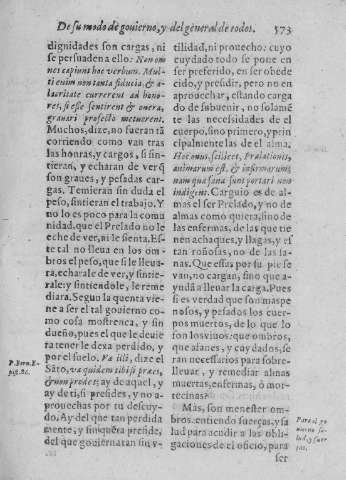 De su modo de gouierno, y del general de todos. 573
dignidades son cargas, ni
se persuaden a ello: Non om
nes capiunt hoc verbum. Mul-
ti enim non tanta fiducia, & a-
lacritate currerent ad hono-
res, si esse sentirent & onera,
grauari profecto metuerent.
Muchos, dize, no fueran tã
corriendo como van tras
las honras, y cargos, si sin-
tieran, y echaran de ver q̃
son graues, y pesadas car-
gas. Temieran sin duda el
peso, sintieran el trabajo. Y
no lo es poco para la comu
nidad, que el Prelado no le
eche de ver, ni le sienta. Es-
te tal no lleua en los om-
bros el peso, que si le lleua-
ra, echarale de ver, y sintie-
rale: y sintiendole, le reme
diara. Segun la quenta vie-
ne a ser el tal gouierno co-
mo cosa mostrenca, y sin
dueño, pues el que le deuie
ra tener le dexa perdido, y
por el suelo. Væ illi, dize el
P. Bern. E-
pist. 86.
Sãto, væ quidem tibi si præes,
& non prodes; ay de aquel, y
ay de ti, si presides, y no a-
prouechas por tu descuy-
do. Ay del que tan perdida
mente, y siniquera preside,
del que gouiernatan sin v-
tilidad, ni prouecho: cuyo
cuydado todo se pone en
ser preferido, en ser obede
cido, y presidir, pero no en
aprouechar, estando carga
do de subuenir, no solamẽ
te las necessidades de el
cuerpo, sino primero, y prin
cipalmente las de el alma.
Hoc onus, scilicet, Prælationis,
animarum est, & infirmarum;
nam quæ sanæ sunt portari non
indigent. Carguio es de al-
mas el ser Prelado, y no de
almas como quiera, sino de
las enfermas, de las que tie
nen achaques, y llagas, y es
tan roñosas, no de las sa-
nas. Que essas por su pie se
van, no cargan, sino que a-
yudã a lleuar la carga. Pues
si es verdad que son maspe
nosos, y pesados los cuer-
pos muertos, de lo que lo
son los viuos: que ombros,
que afanes, y cuydados, se
ran necessarios para sobre-
lleuar, y remediar almas
muertas, enfermas, ò mor-
tecinas?
Màs, son menester om-
bros, entiendo fuerças, y sa
lud para acudir a las obli-
gaciones de el oficio, para
ser